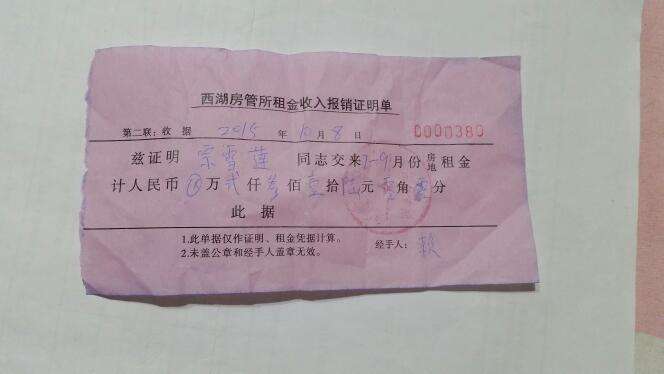 西湖房管所租金收入报销证明单
第二联：收 据 2015 年 10 月 8 日 0000380
兹证明 宗雪莲 同志交来7-9月份房地租金
计人民币 ⊗万弍仟叁佰壹拾陆元零角零分
此 据
1.此单据仅作证明、租金凭据计算。
2.未盖公章和经手人盖章无效。 经手人：